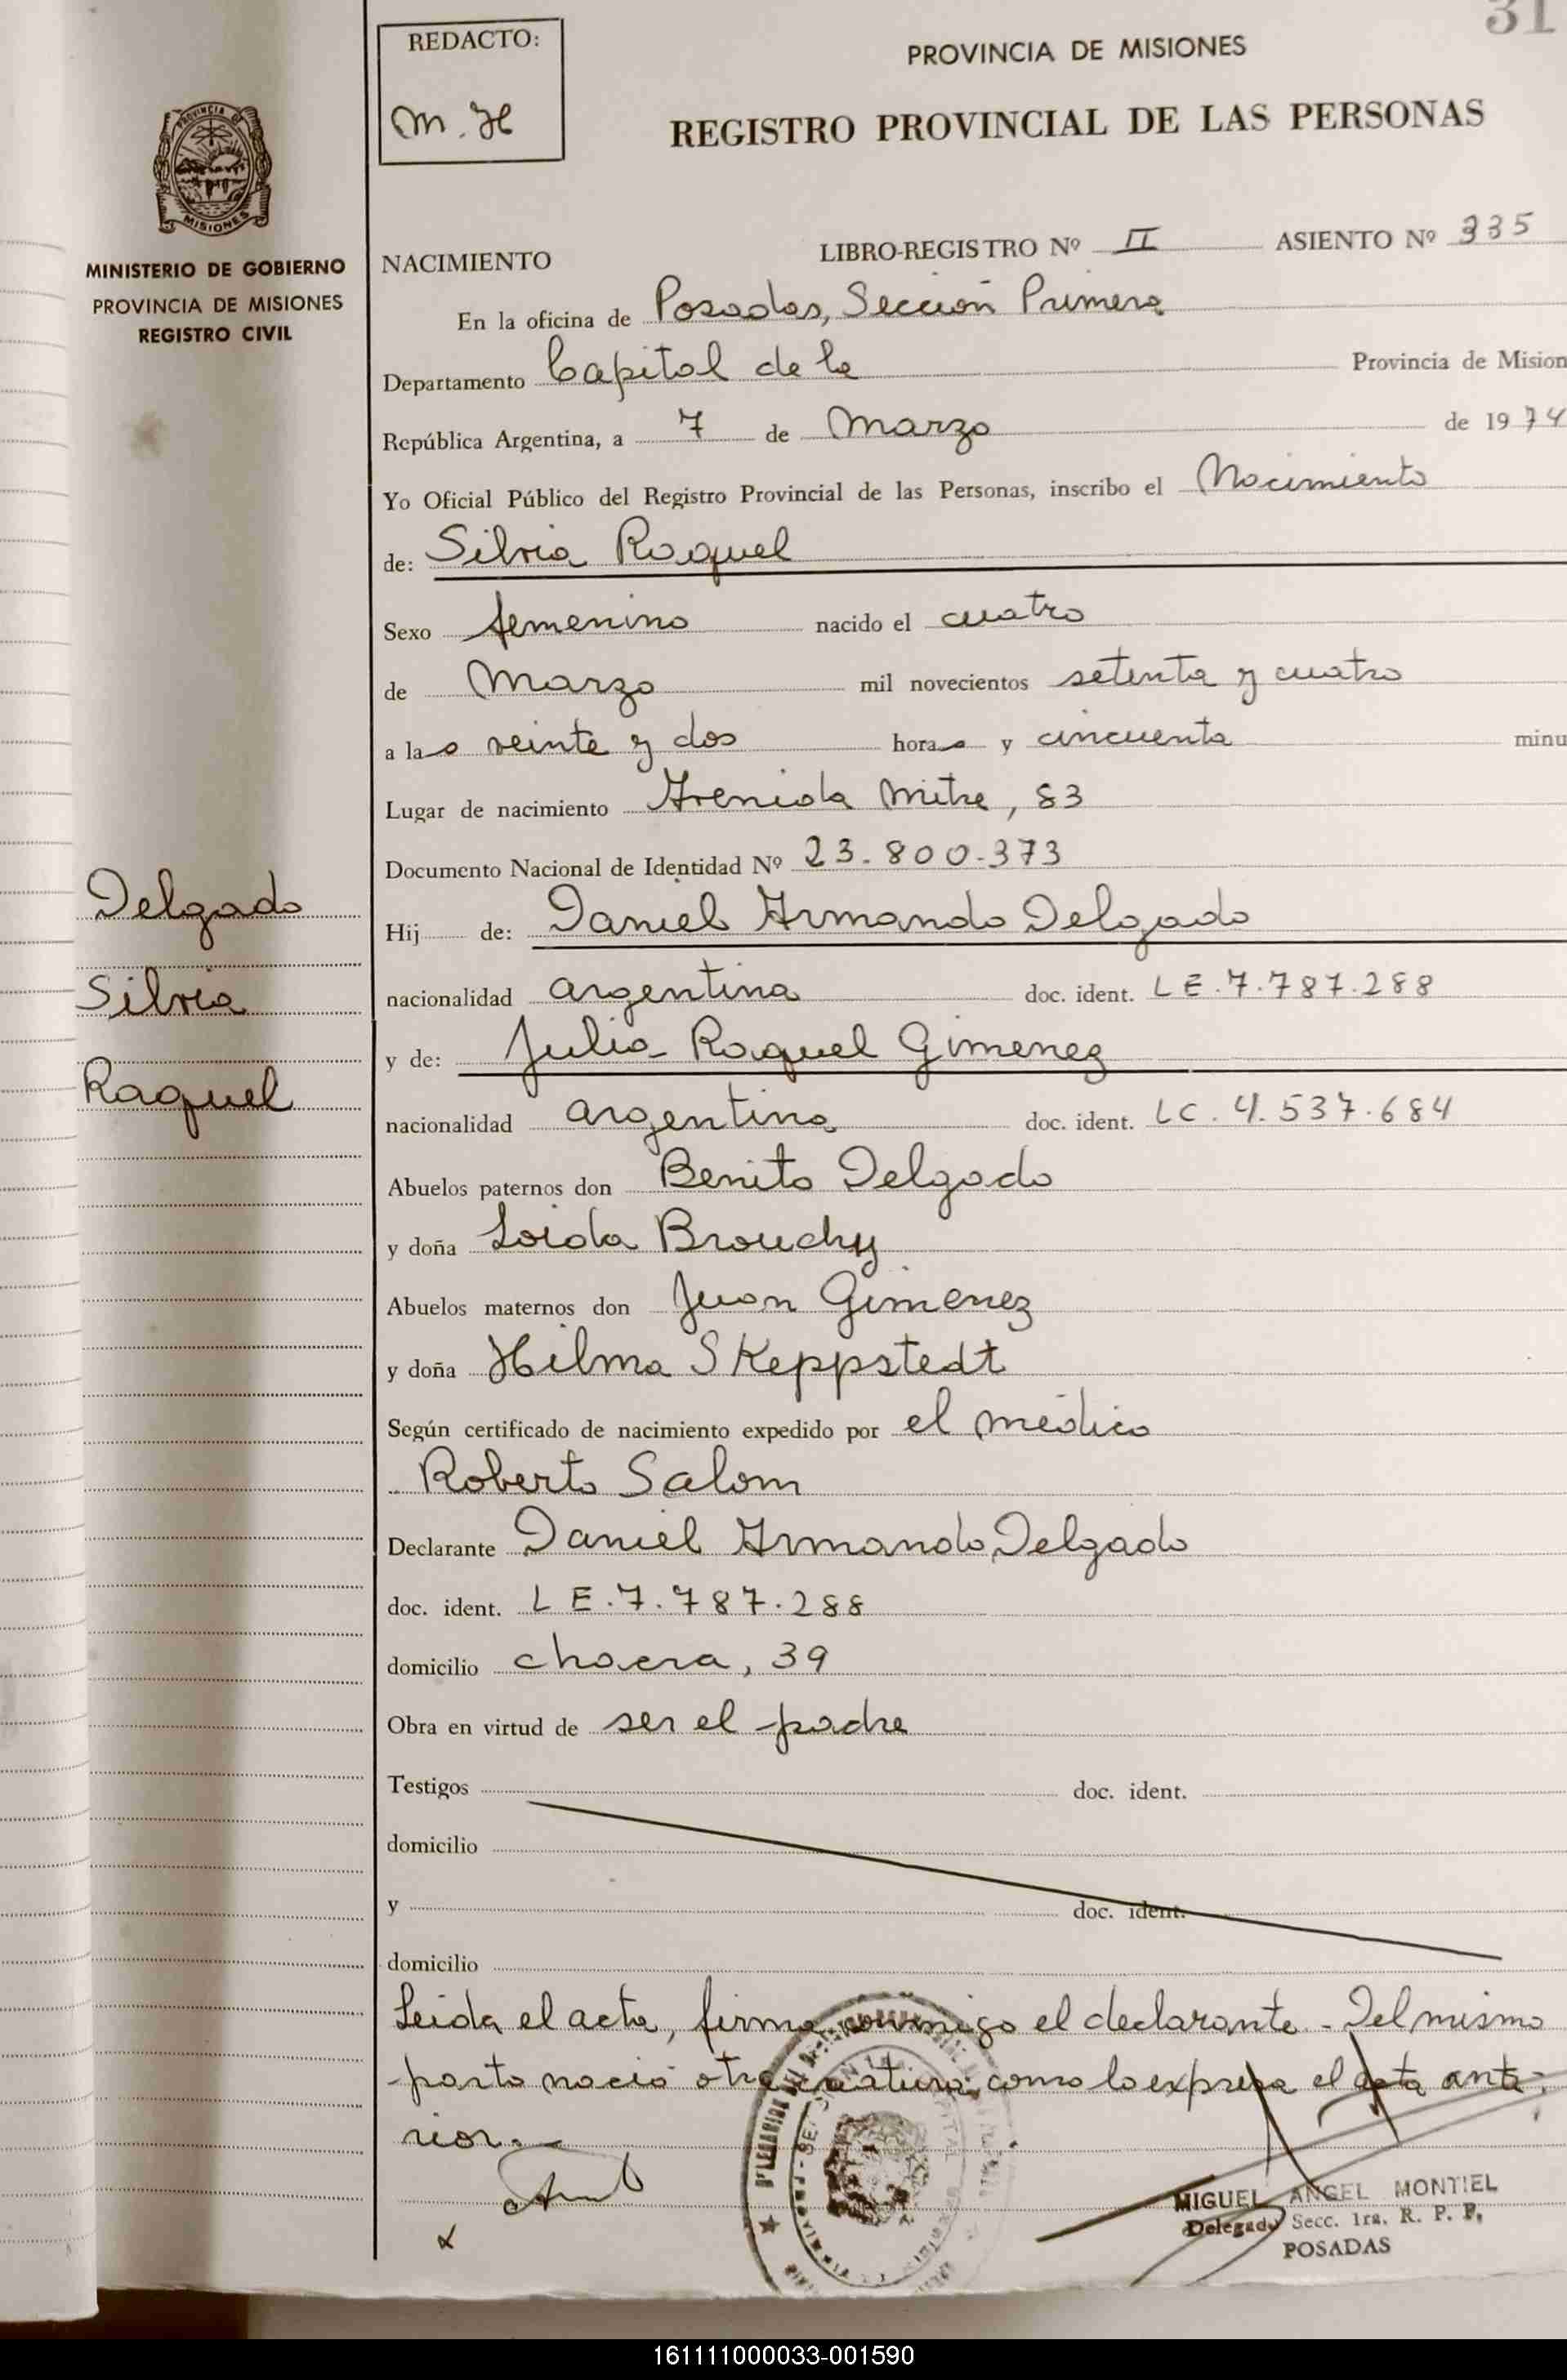 31
REDACTO:
M. H
PROVINCIA DE MISIONES
REGISTRO PROVINCIAL DE LAS PERSONAS
PROVINCIA DE
MISIONES
MINISTERIO DE GOBIERNO
PROVINCIA DE MISIONES
REGISTRO CIVIL
NACIMIENTO LIBRO-REGISTRO Nº II ASIENTO Nº 335
En la oficina de Posadas, Sección Primera
Departamento Capital de la Provincia de Mision
República Argentina, a 7 de Marzo de 1974
Yo Oficial Público del Registro Provincial de las Personas, inscribo el Nacimiento
de: Silvia Raquel
Sexo femenino nacido el cuatro
de Marzo mil novecientos setenta y cuatro
a las veinte y dos horas y cincuenta minu
Lugar de nacimiento Avenida Mitre, 83
Documento Nacional de Identidad Nº 23.800.373
Delgado
Silvia
Raquel
Hij de: Daniel Armando Delgado
nacionalidad argentina doc. ident. LE.7.787.288
y de: Julia Raquel Gimenez
nacionalidad argentina doc. ident. LC.4.537.684
Abuelos paternos don Benito Delgado
y doña Loida Brouchy
Abuelos maternos don Juan Gimenez
y doña Hilma SKeppstedt
Según certificado de nacimiento expedido por el médico
Roberto Salom
Declarante Daniel Armando Delgado
doc. ident. LE.7.787.288
domicilio chacra, 39
Obra en virtud de ser el padre
Testigos doc. ident.
domicilio
y doc. ident.
domicilio
Leida el acta, firma conmigo el declarante - Del mismo
parto nació otra criatura, como lo expresa el acta ante-
rior.-
MIGUEL ANGEL MONTIEL
Delegado Secc. 1ra. R. P. P.
POSADAS
161111000033-001590